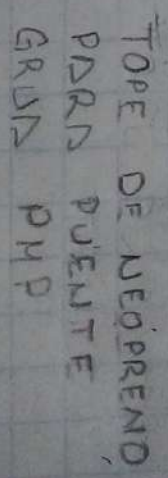 TOPE DE NEOPRENO
PARA PUENTE
GRUA PHP